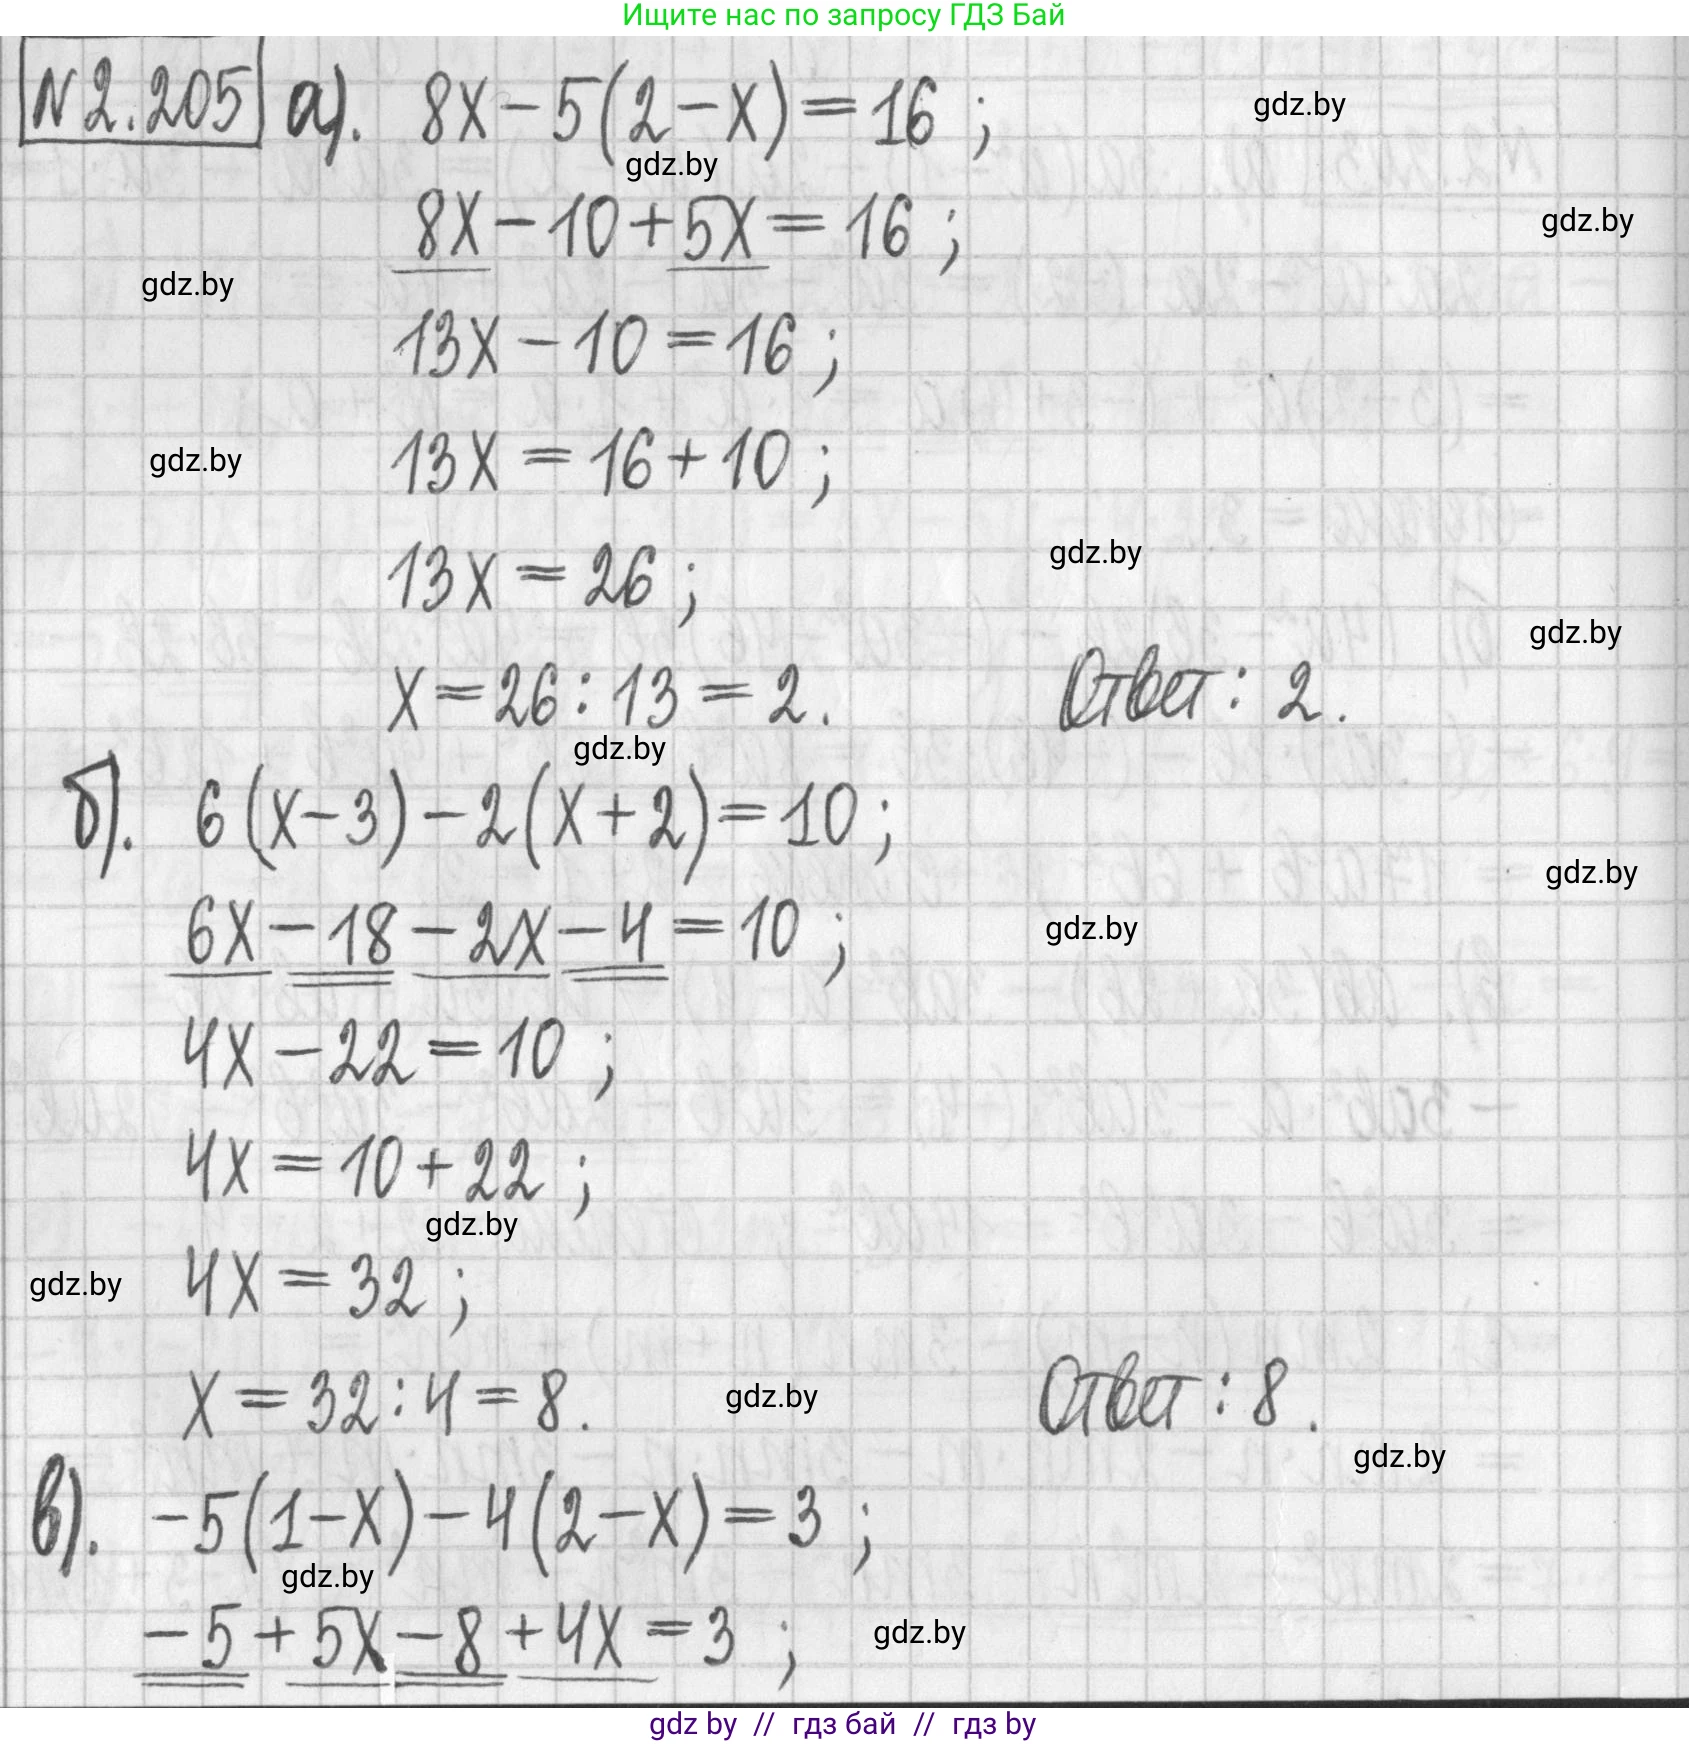 Ищите нас по запросу ГДЗ Бай
N2.205 а). 8x-5(2-x)=16 ;
gdz.by
gdz.by
8x-10+5x=16 ;
gdz.by
gdz.by
13x-10=16 ;
13x=16+10 ;
gdz.by
13x=26 ;
gdz.by
gdz.by
x=26:13=2. Ответ: 2.
gdz.by
б). 6(x-3)-2(x+2)=10 ;
gdz.by
6x-18-2x-4=10 ;
gdz.by
4x-22=10 ;
4x=10+22 ;
gdz.by
4x=32 ;
gdz.by
x=32:4=8. Ответ: 8.
gdz.by
gdz.by
в). -5(1-x)-4(2-x)=3 ;
gdz.by
-5+5x-8+4x=3 ;
gdz.by
gdz by // гдз бай // гдз by